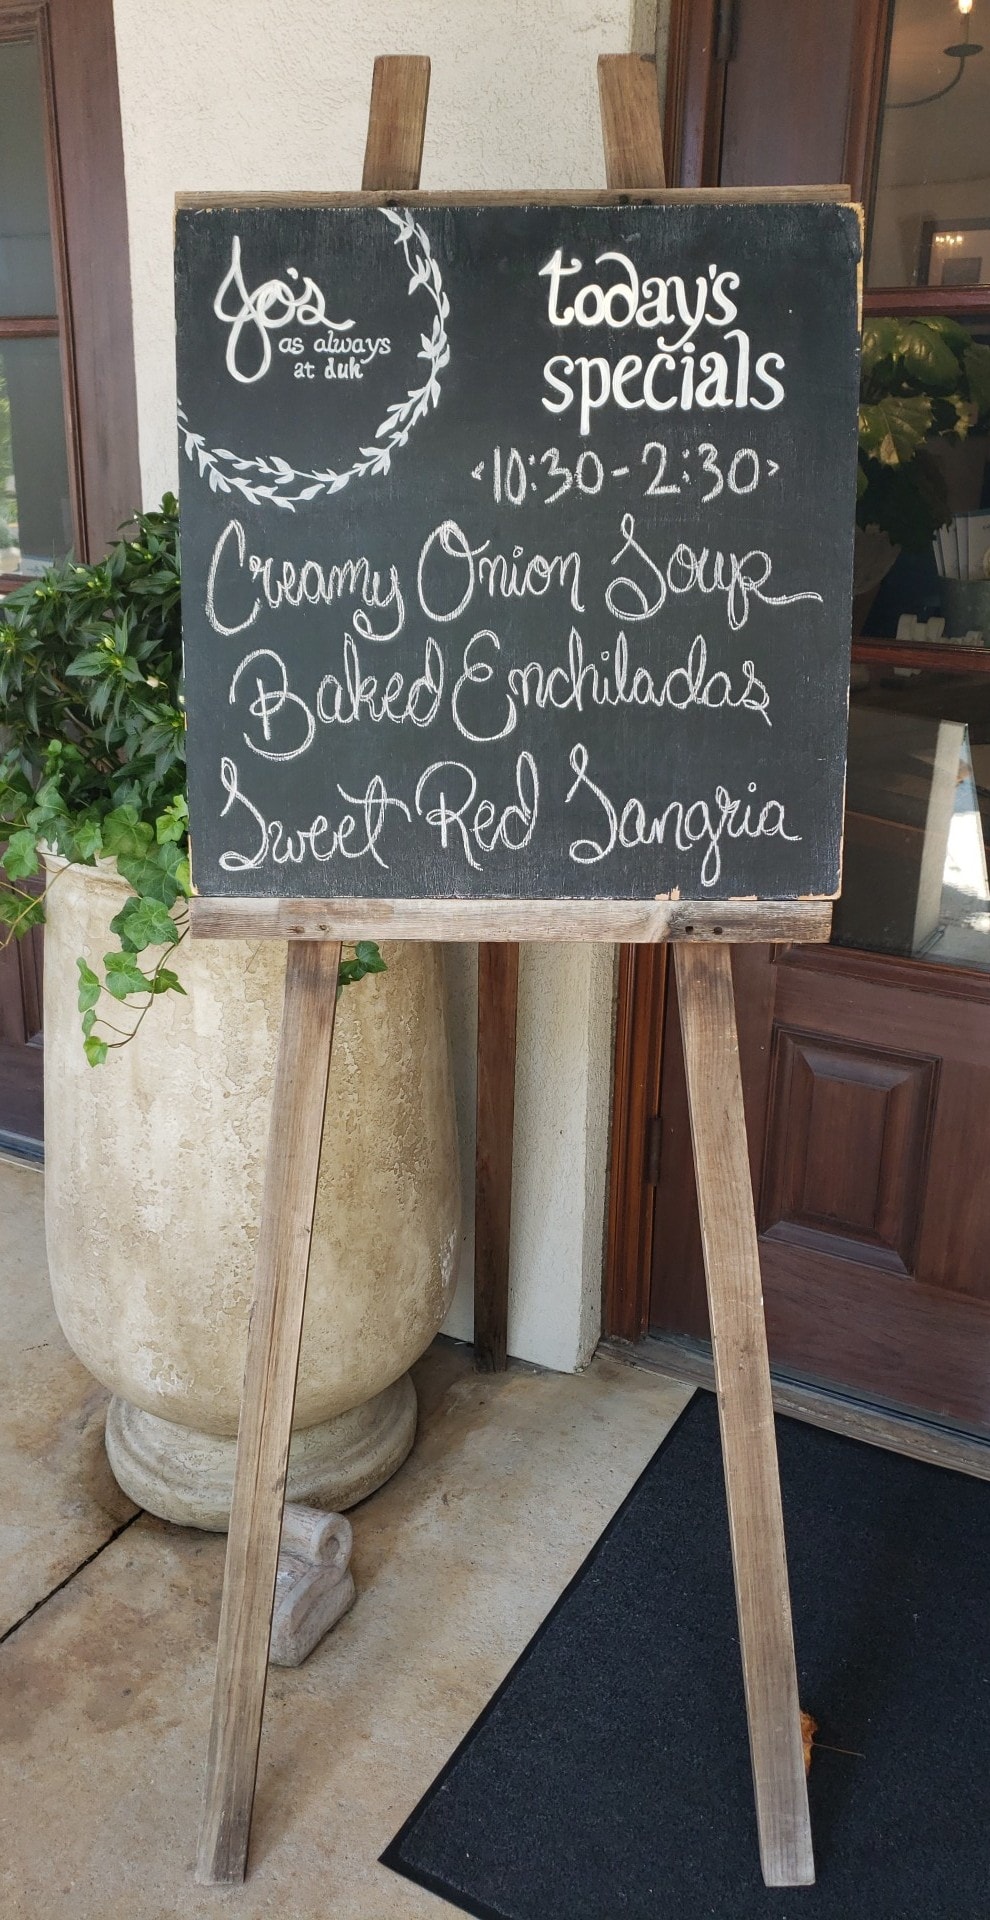 Jo's
as always
at duh
today's
specials
<10:30-2:30>
Creamy Onion Soup
Baked Enchiladas
Sweet Red Sangria